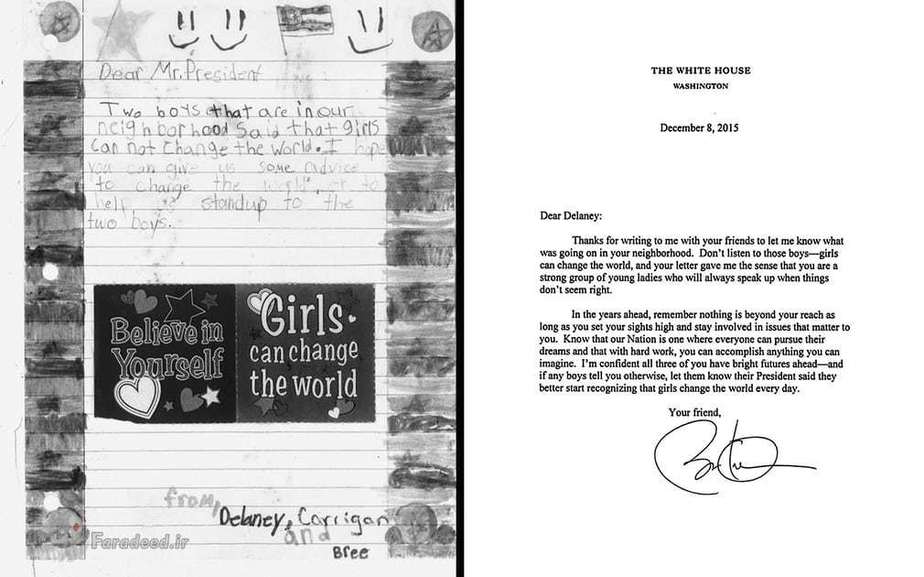 Dear Mr. President
Two boys that are in our
neighborhood Said that girls
Can not Change the World. I hope
you can give us some advice
to change the world, or to
help us standup to the
two boys.
Believe in
Yourself
Girls
can change
the world
from,
Delaney, Corrigan
and
Bree
Faradeed.ir
THE WHITE HOUSE
WASHINGTON
December 8, 2015
Dear Delaney:
Thanks for writing to me with your friends to let me know what
was going on in your neighborhood. Don't listen to those boys—girls
can change the world, and your letter gave me the sense that you are a
strong group of young ladies who will always speak up when things
don't seem right.
In the years ahead, remember nothing is beyond your reach as
long as you set your sights high and stay involved in issues that matter to
you. Know that our Nation is one where everyone can pursue their
dreams and that with hard work, you can accomplish anything you can
imagine. I'm confident all three of you have bright futures ahead—and
if any boys tell you otherwise, let them know their President said they
better start recognizing that girls change the world every day.
Your friend,